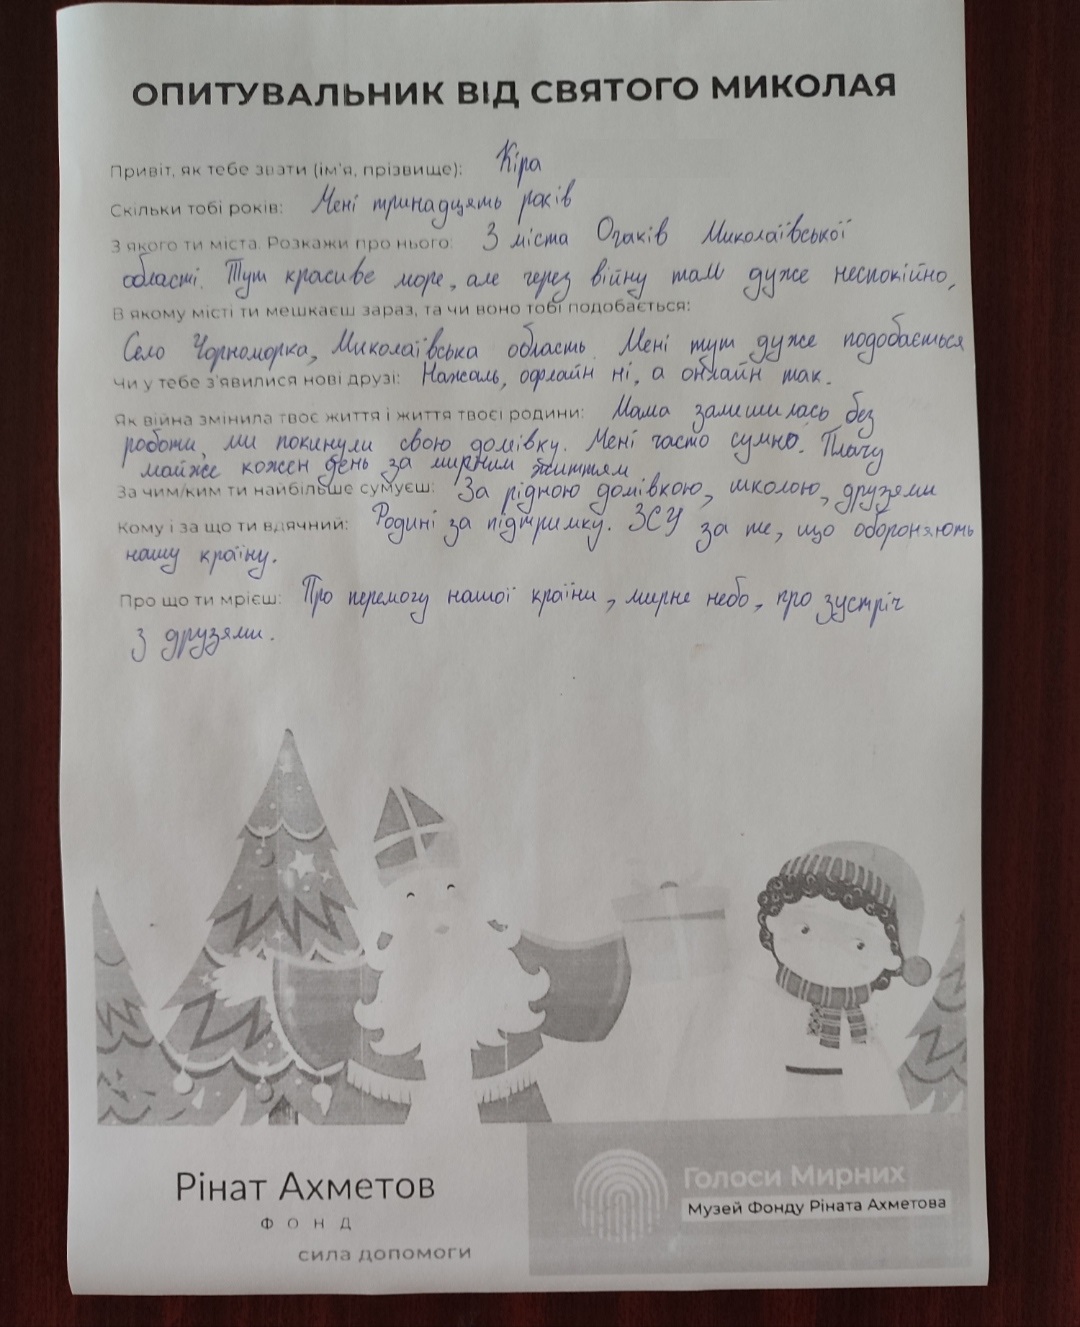 ОПИТУВАЛЬНИК ВІД СВЯТОГО МИКОЛАЯ
Привіт, як тебе звати (ім'я, прізвище): Кіра
Скільки тобі років: Мені тринадцять років
З якого ти міста. Розкажи про нього: З міста Очаків Миколаївської
області. Тут красиве море, але через війну там дуже неспокійно,
В якому місті ти мешкаєш зараз, та чи воно тобі подобається:
Село Чорноморка, Миколаївська область. Мені тут дуже подобається
Чи у тебе з'явилися нові друзі: Нажаль, офлайн ні, а онлайн так.
Як війна змінила твоє життя і життя твоєї родини: Мама залишилась без
роботи, ми покинули свою домівку. Мені часто сумно. Плачу
майже кожен день за мирним життям
За чим/ким ти найбільше сумуєш: За рідною домівкою, школою, друзями
Кому і за що ти вдячний: Родині за підтримку. ЗСУ за те, що обороняють
нашу країну.
Про що ти мрієш: Про перемогу нашої країни, мирне небо, про зустріч
з друзями.
Рінат Ахметов
ФОНД
сила допомоги
Голоси Мирних
Музей Фонду Ріната Ахметова